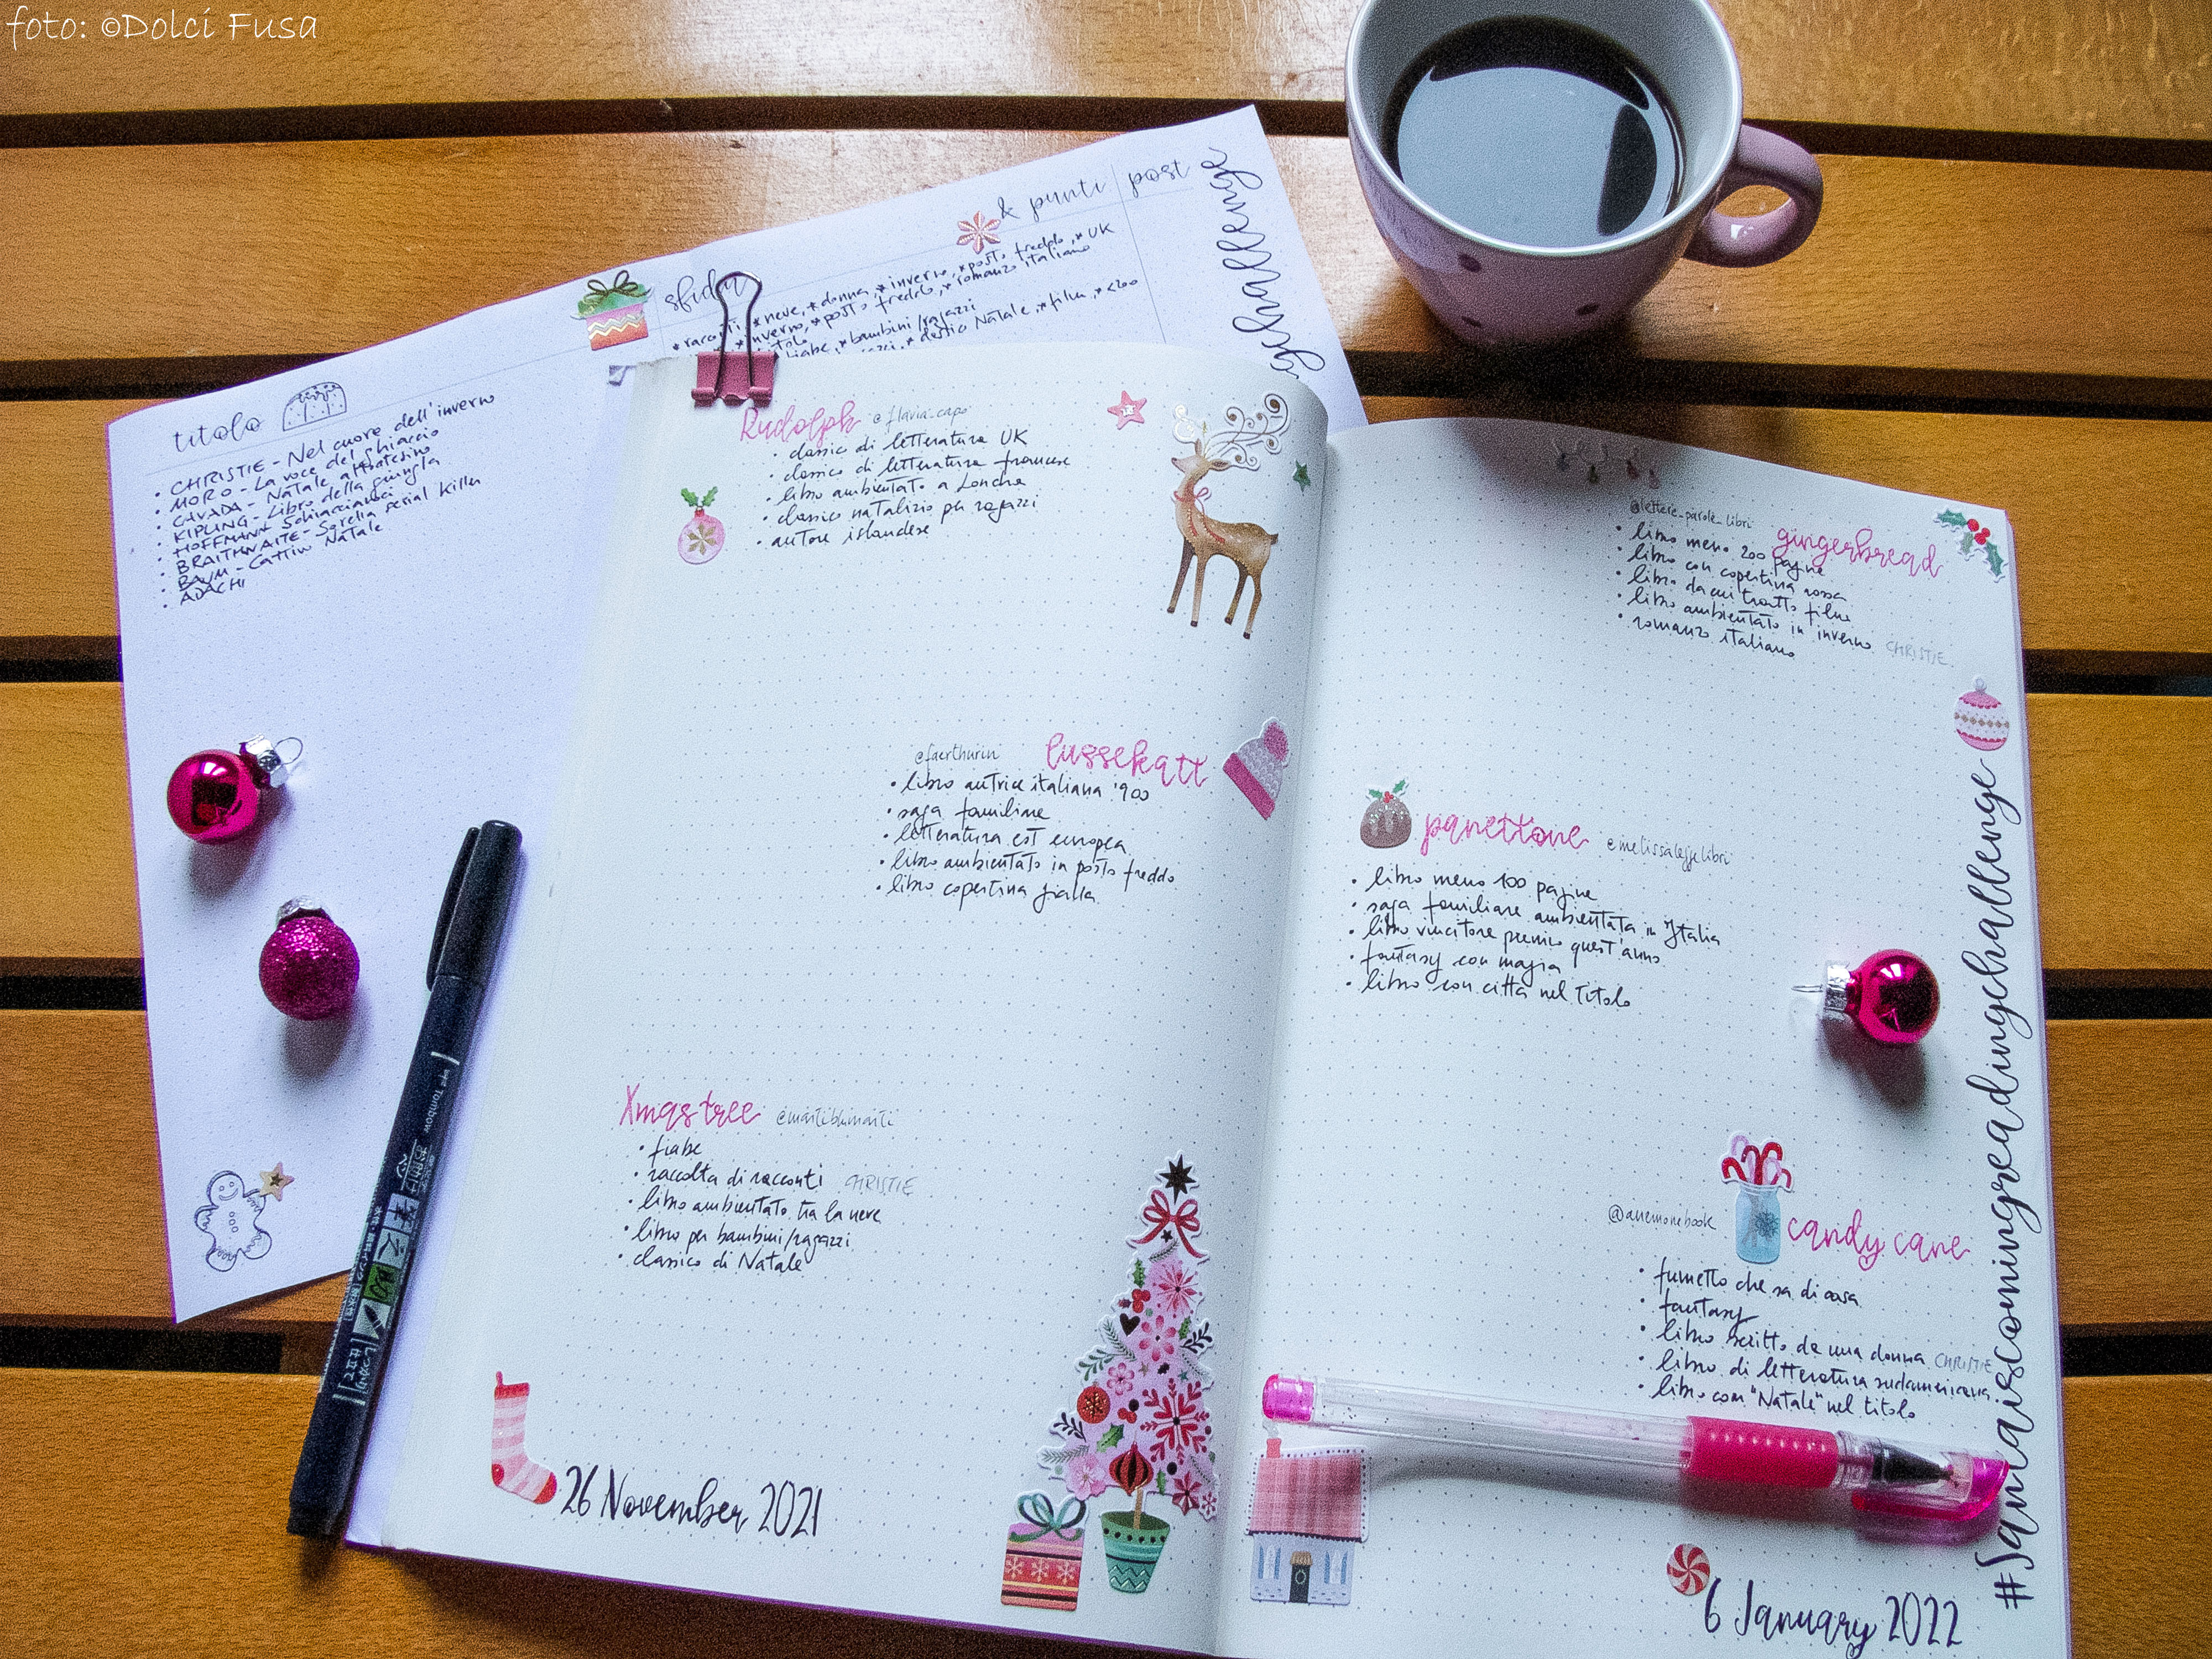 foto: ©Dolci Fusa
titolo
• CHRISTIE - Nel cuore dell'inverno
• MORO - La voce del ghiaccio
• CAVADA - Natale
• KIPLING - Libro della giungla
• HOFFMANN - Schiaccianoci
• BRAITHWAITE - Sorella serial killer
• BAUM - Cattivo Natale
• ADACHI
sfida & punti
post
*neve, *donna, *inverno, *posto freddo, *UK
*inverno, *posto freddo, *romanzo italiano
*bambini/ragazzi
Natale, *film, *<200
Rudolph @flavia_capo
• classic di letteratura UK
• classico di letteratura francese
• libro ambientato a Londra
• classico natalizio per ragazzi
• autore islandese
@faerthurin lussekatt
• libro autrice italiana '900
• saga familiare
• letteratura est europea
• libro ambientato in posto freddo
• libro copertina gialla
Xmas tree
• fiabe
• raccolta di racconti CHRISTIE
• libro ambientato tra la neve
• libro per bambini/ragazzi
• classico di Natale
26 November 2021
@lettere_parole_libri gingerbread
• libro meno 200 pagine
• libro con copertina rossa
• libro da cui tratto film
• libro ambientato in inverno CHRISTIE
• romanzo italiano
panettone @melissaleggelibri
• libro meno 100 pagine
• saga familiare ambientata in Italia
• libro vincitore premio quest'anno
• fantasy con magia
• libro con città nel titolo
@anemonebook candy cane
• fumetto che sa di casa
• fantasy
• libro scritto da una donna CHRISTIE
• libro di letteratura sudamericana
• libro con "Natale" nel titolo
6 January 2022
#Santaiscomingreadingchallenge
Tombow